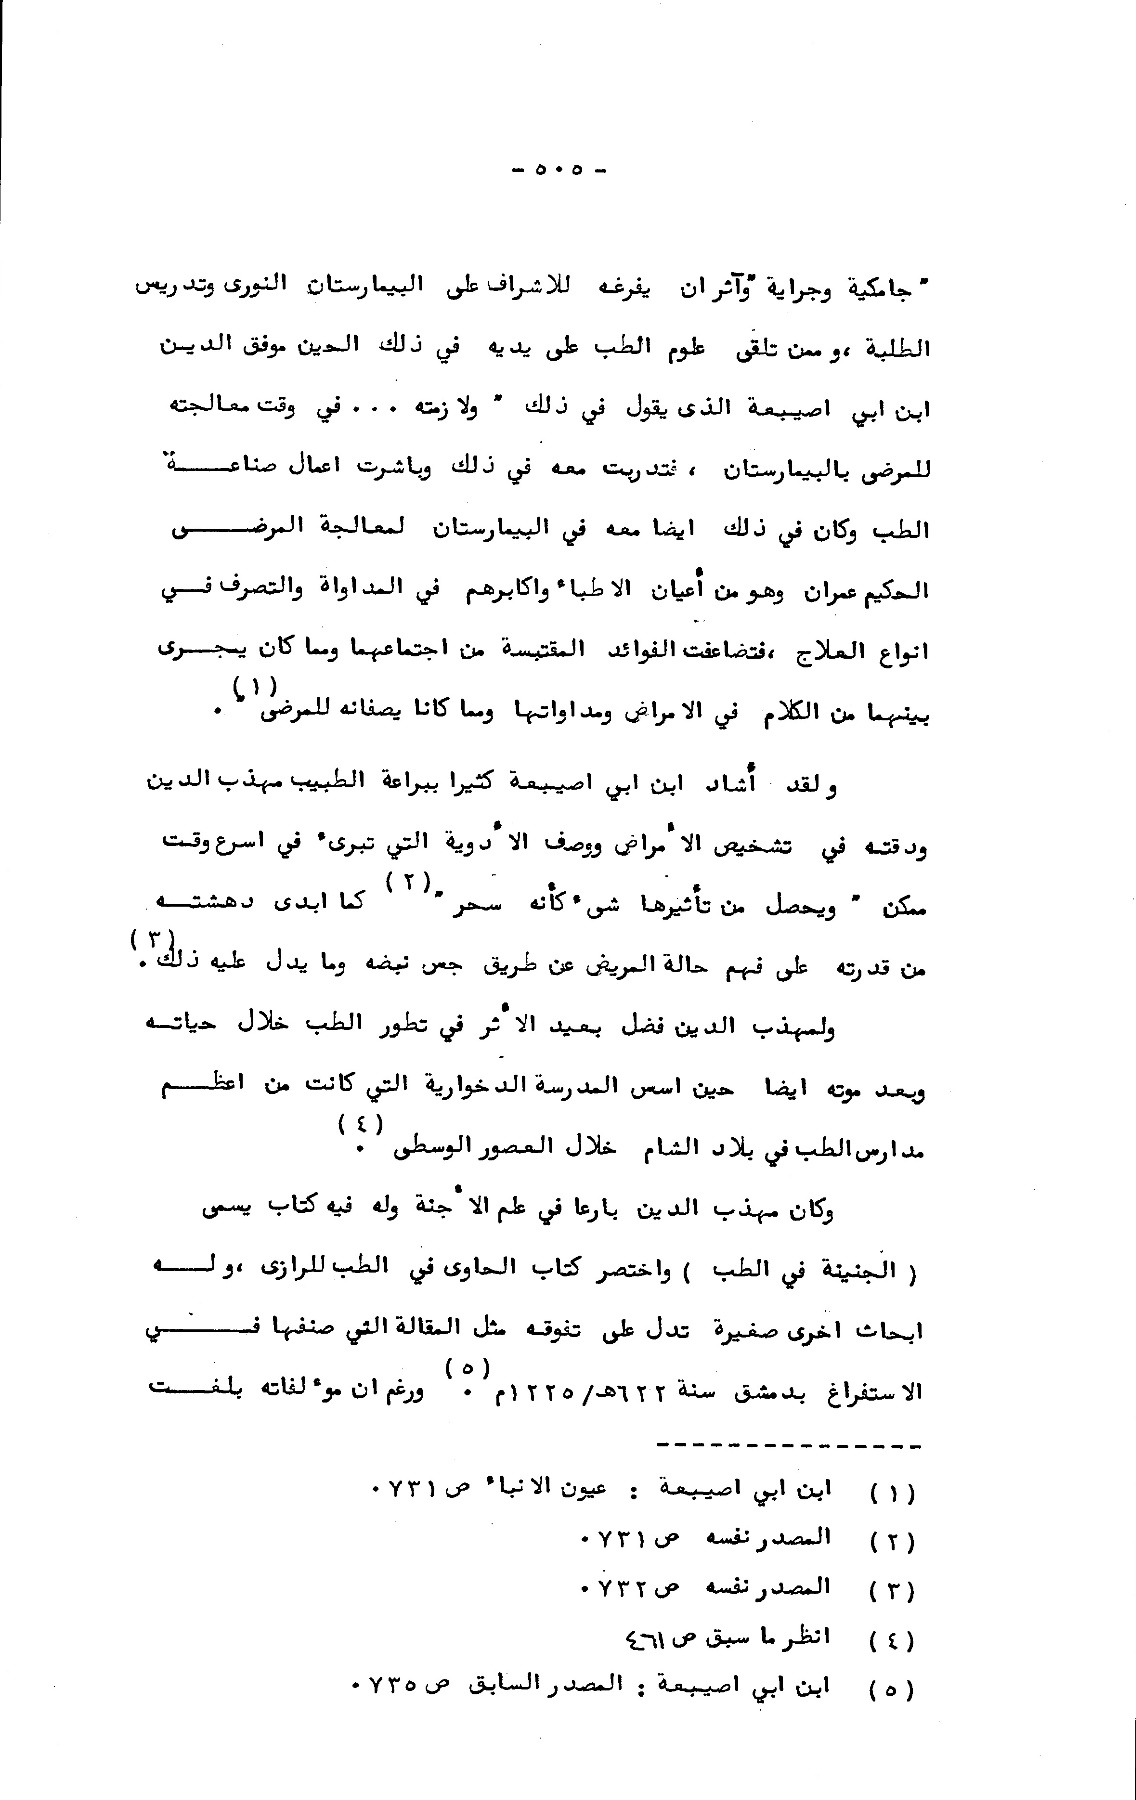 - ٥٠٥ -
" جامكية وجراية " وآثر ان يفرغه للاشراف على البيمارستان النورى وتدريس
الطلبة ، و ممن تلقى علوم الطب على يديه في ذلك الحين موفق الديـن
ابن ابي اصيبعة الذى يقول في ذلك " ولا زمته ... في وقت معالجته
للمرضى بالبيمارستان ، فتدربت معه في ذلك وباشرت اعمال صناعـــة
الطب وكان في ذلك ايضا معه في البيمارستان لمعالجة المرضــــى
الحكيم عمران وهو من أعيان الاطباء واكابرهم في المداواة والتصرف فـــي
انواع العلاج ، فتضاعفت الفوائد المقتبسة من اجتماعهما ومما كان يجـــرى
بينهما من الكلام في الامراض ومداواتها ومما كانا يصفانه للمرضى " (١) .
ولقد أشاد ابن ابي اصيبعة كثيرا ببراعة الطبيب مهذب الدين
ودقته في تشخيص الأمراض ووصف الأدوية التي تبرىء في اسرع وقت
ممكن " ويحصل من تأثيرها شىء كأنه سحر " (٢) كما ابدى دهشتـــه
من قدرته على فهم حالة المريض عن طريق جس نبضه وما يدل عليه ذلك (٣) .
ولمهذب الدين فضل بعيد الأثر في تطور الطب خلال حياتـه
وبعد موته ايضا حين اسس المدرسة الدخوارية التي كانت من اعظـــم
مدارس الطب في بلاد الشام خلال العصور الوسطى (٤) .
وكان مهذب الدين بارعا في علم الأجنة وله فيه كتاب يسمى
( الجنينة في الطب ) واختصر كتاب الحاوى في الطب للرازى ، و لـــه
ابحاث اخرى صغيرة تدل على تفوقه مثل المقالة التي صنفها فـــــي
الاستفراغ بدمشق سنة ٦٢٢هـ/١٢٢٥م (٥) . ورغم ان مؤلفاته بلغـت
(١) ابن ابي اصيبعة : عيون الانباء ص ٧٣١ .
(٢) المصدر نفسه ص ٧٣١ .
(٣) المصدر نفسه ص ٧٣٢ .
(٤) انظر ما سبق ص ٤٦١
(٥) ابن ابي اصيبعة : المصدر السابق ص ٧٣٥ .